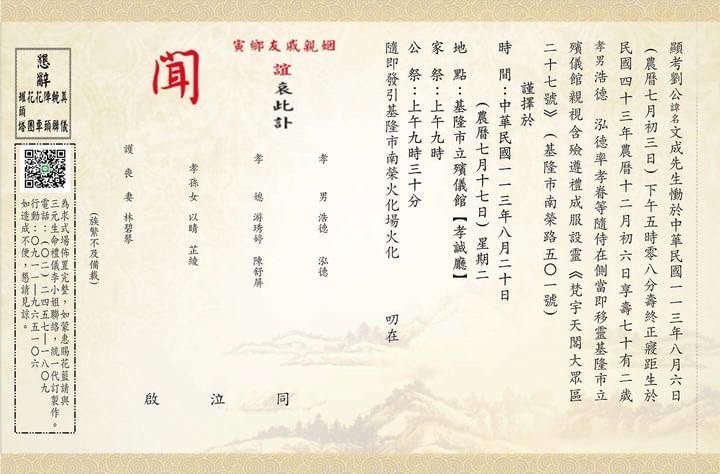 顯考劉公諱名文成先生慟於中華民國一一三年八月六日
（農曆七月初三日）下午五時零八分壽終正寢距生於
民國四十三年農曆十二月初六日享壽七十有二歲
孝男浩德　泓德率孝眷等隨侍在側當即移靈基隆市立
殯儀館親視含殮遵禮成服設靈《梵宇天閣大眾區
二十七號》（基隆市南榮路五０一號）
謹擇於
時　間：中華民國一一三年八月二十日
（農曆七月十七日）星期二
地　點：基隆市立殯儀館【孝誠廳】
家　祭：上午九時
公　祭：上午九時三十分
隨即發引基隆市南榮火化場火化
叨在
姻親戚友鄉寅
誼　哀此訃
聞
孝　男　浩德　泓德
孝　媳　游琇婷　陳舒屏
孝孫女　以晴　芷綾
護　喪　妻　林碧琴
（族繁不及備載）
同　泣　啟
懇辭
奠儀
輓聯
陣頭
花車
花圈
罐頭塔
為求式場佈置完整，如蒙惠賜花籃請與
三元生命禮儀李小姐聯絡，統一代訂製作。
電話：（０二）二四五七－一八０九
行動：０九一一－九六五一０六
如造成不便，懇請見諒。